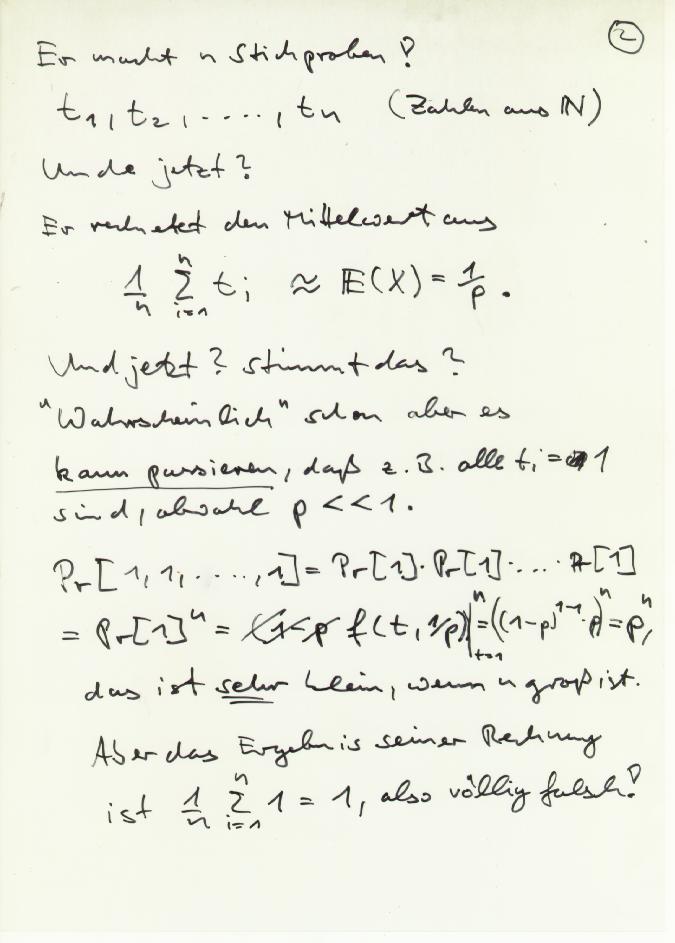 2
Er macht n Stichproben!
t₁, t₂, ...., tn (Zahlen aus ℕ)
Und jetzt?
Er rechnet den Mittelwert aus
1/n Σ_{i=1}^{n} t_i ≈ 𝔼(X) = 1/p.
Und jetzt? stimmt das?
"Wahrscheinlich" schon aber es
kann passieren, daß z.B. alle t_i = 1
sind, obwohl p << 1.
Pr[1, 1, ...., 1] = Pr[1]·Pr[1]·...·Pr[1]
= Pr[1]^n = f(t, 1/p)|^n_{t=1} = ((1-p)^{1-1}·p)^n = p^n,
das ist sehr klein, wenn n groß ist.
Aber das Ergebnis seiner Rechnung
ist 1/n Σ_{i=1}^{n} 1 = 1, also völlig falsch!